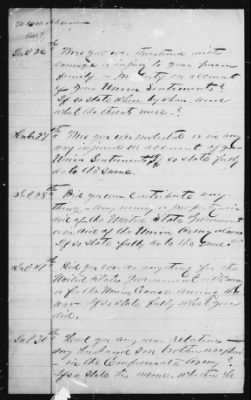 Int 26th Were you ever threatened with
damage or injury to your person
family or property on account
of your Union Sentiments?
If so state when by whom and
what the threats were?
Int 27th Were you ever molested or in any
way injured on account of your
Union Sentiments? If so state fully
as to the same.
Int 28th Did you ever Contribute any-
thing - any money or property in
aid of the United States Government
or in aid of the Union Army or cause
If so state fully as to the same
Int 29th Did you ever do anything for the
United States Government
or for the Union Cause during the
war If so state fully what you
did.
Int 30th Had you any near relatives
any husband Son brother or nephew
in the Confederate Army?
If so state his name, when he